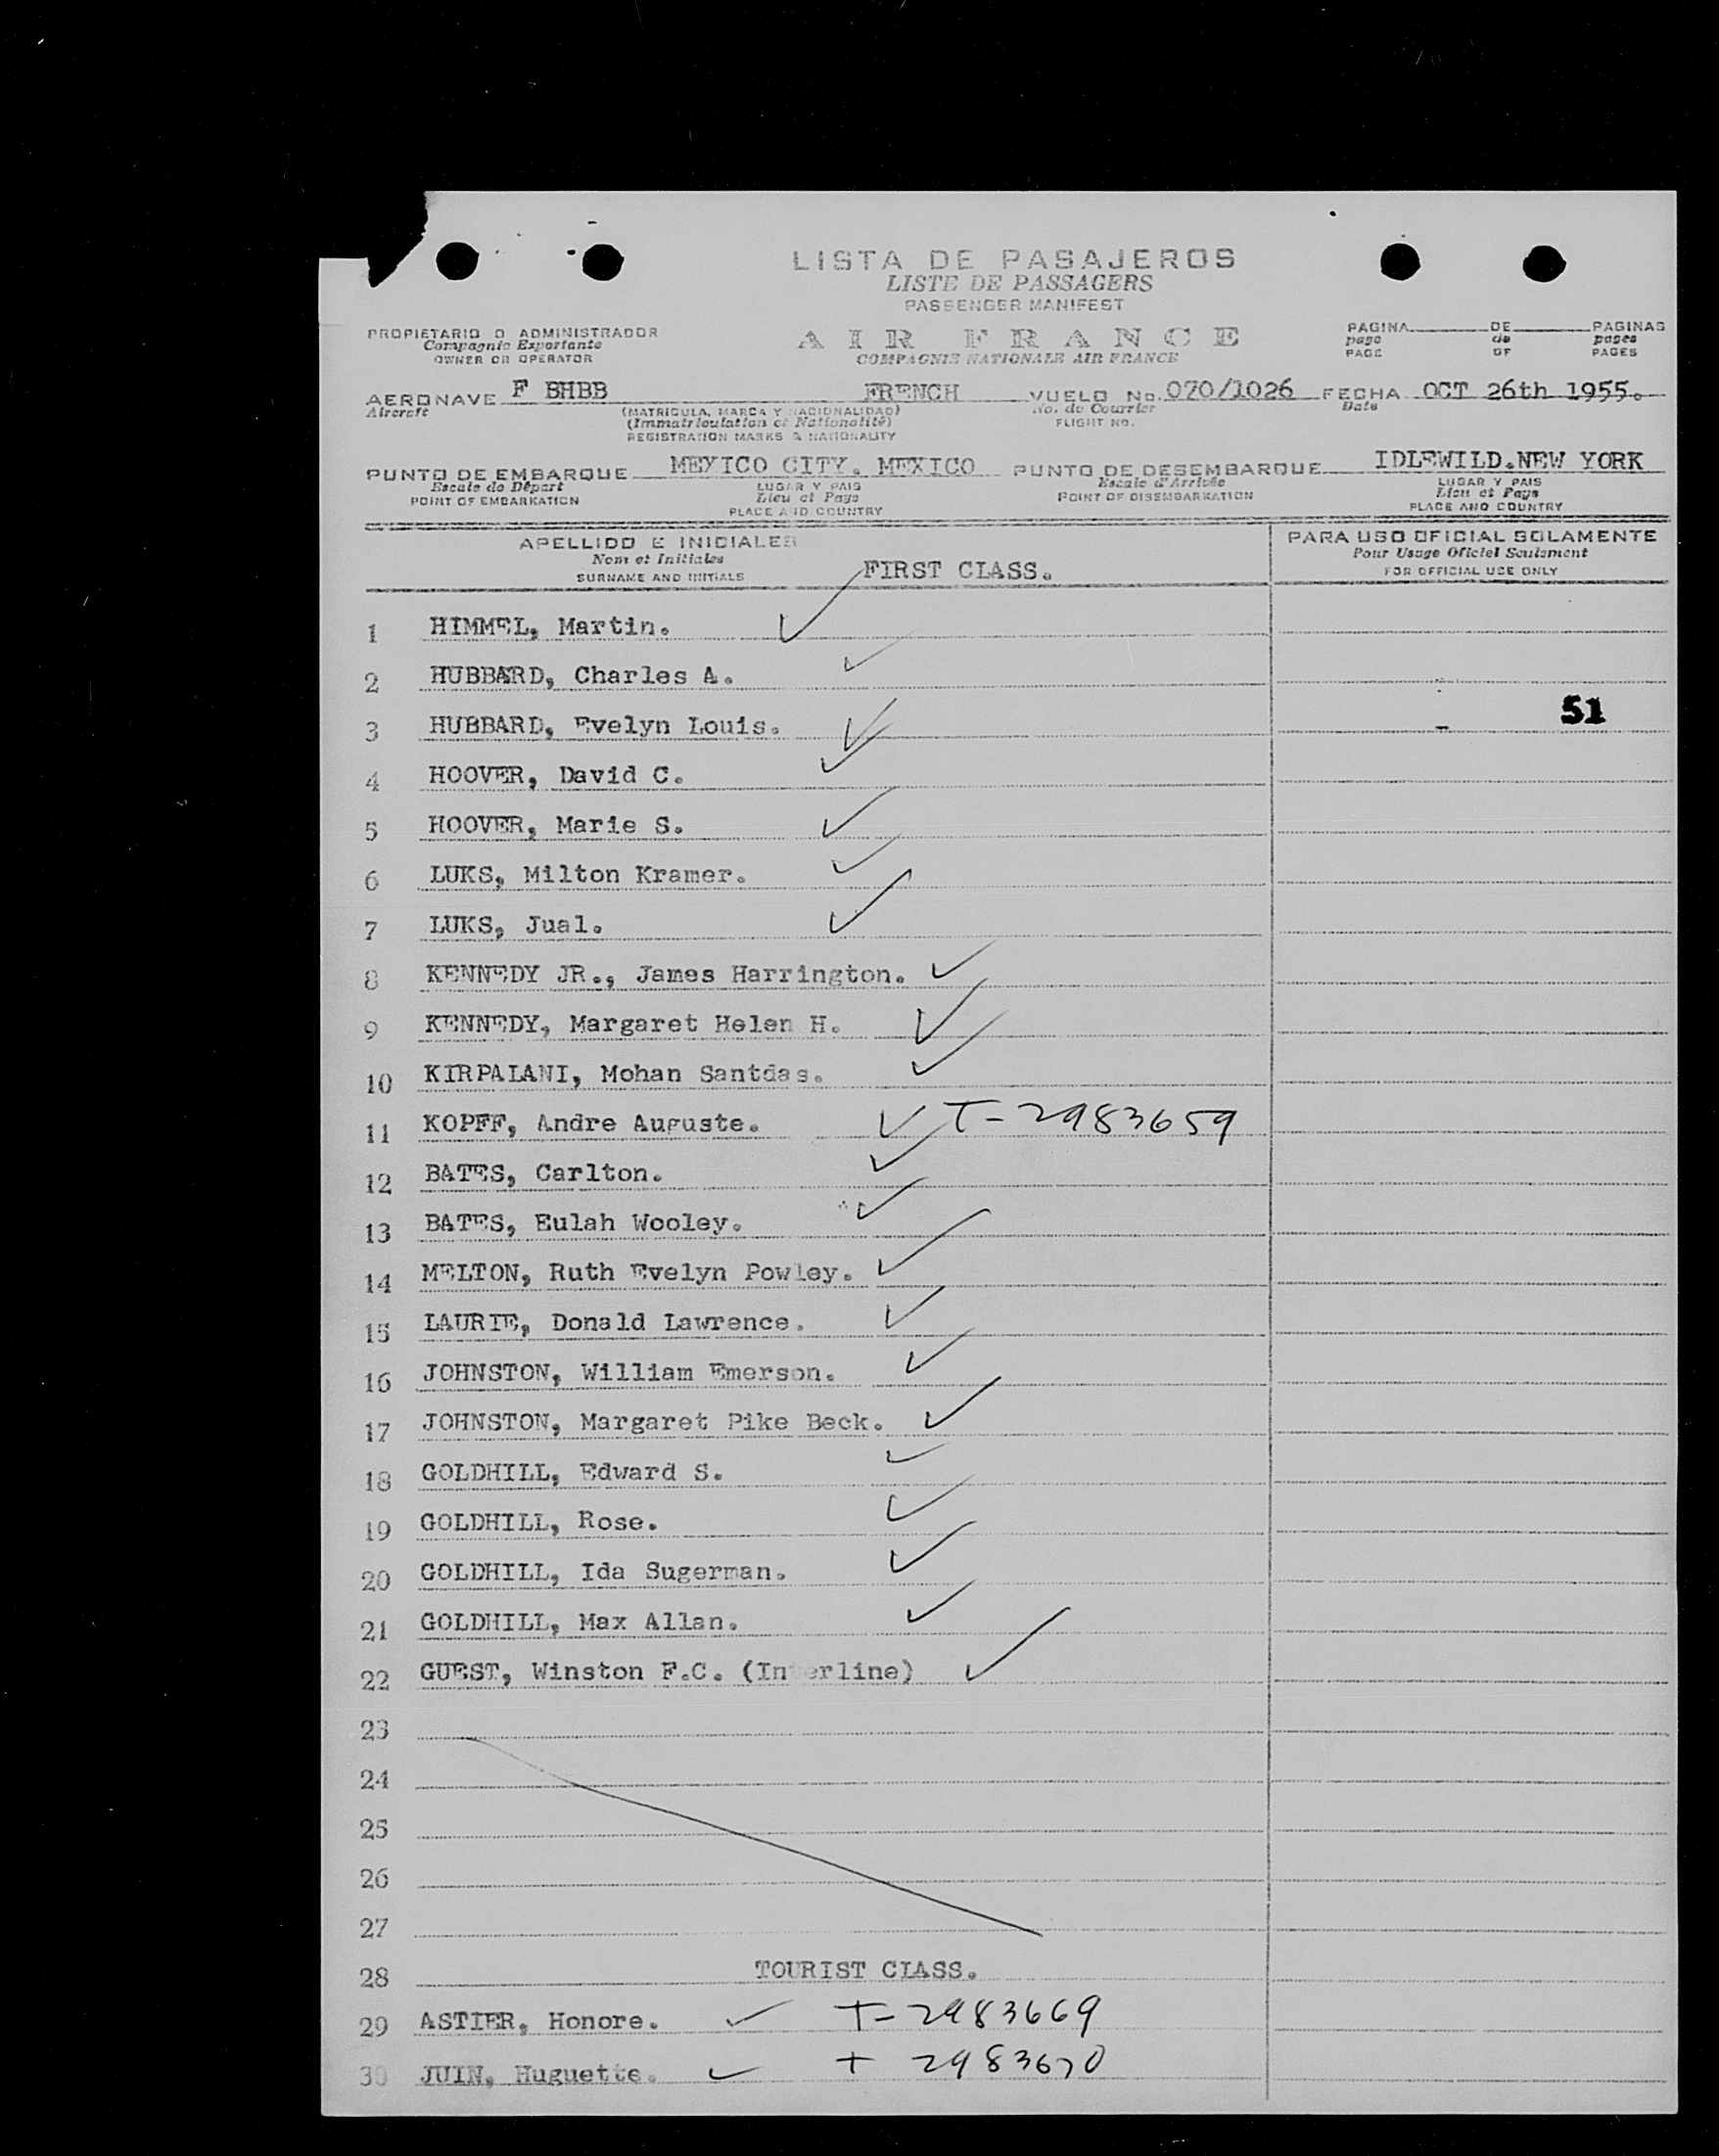 LISTA DE PASAJEROS
LISTE DE PASSAGERS
PASSENGER MANIFEST
PROPIETARIO O ADMINISTRADOR
Compagnie Exportante
OWNER OR OPERATOR
AIR FRANCE
COMPAGNIE NATIONALE AIR FRANCE
PAGINA DE PAGINAS
page de pages
PAGE OF PAGES
AERONAVE F BHBB FRENCH VUELO No. 070/1026 FECHA OCT 26th 1955.
Aircraft (MATRICULA, MARCA Y NACIONALIDAD) No. du Courrier Date
(Immatriculation et Nationalité) FLIGHT NO.
REGISTRATION MARKS & NATIONALITY
PUNTO DE EMBARQUE MEXICO CITY. MEXICO PUNTO DE DESEMBARQUE IDLEWILD.NEW YORK
Escale de Départ LUGAR Y PAIS Escale d'Arrivée LUGAR Y PAIS
POINT OF EMBARKATION Lieu et Pays POINT OF DISEMBARKATION Lieu et Pays
PLACE AND COUNTRY PLACE AND COUNTRY
APELLIDO E INICIALES PARA USO OFICIAL SOLAMENTE
Nom et Initiales Pour Usage Oficiel Seulement
SURNAME AND INITIALS FIRST CLASS. FOR OFFICIAL USE ONLY
1 HIMMEL, Martin.
2 HUBBARD, Charles A.
3 HUBBARD, Evelyn Louis. 51
4 HOOVER, David C.
5 HOOVER, Marie S.
6 LUKS, Milton Kramer.
7 LUKS, Jual.
8 KENNEDY JR., James Harrington.
9 KENNEDY, Margaret Helen H.
10 KIRPALANI, Mohan Santdas.
11 KOPFF, Andre Auguste. T-2983659
12 BATES, Carlton.
13 BATES, Eulah Wooley.
14 MELTON, Ruth Evelyn Powley.
15 LAURIE, Donald Lawrence.
16 JOHNSTON, William Emerson.
17 JOHNSTON, Margaret Pike Beck.
18 GOLDHILL, Edward S.
19 GOLDHILL, Rose.
20 GOLDHILL, Ida Sugerman.
21 GOLDHILL, Max Allan.
22 GUEST, Winston F.C. (Interline)
23
24
25
26
27
28 TOURIST CLASS.
29 ASTIER, Honore. T-2983669
30 JUIN, Huguette. T 2983670